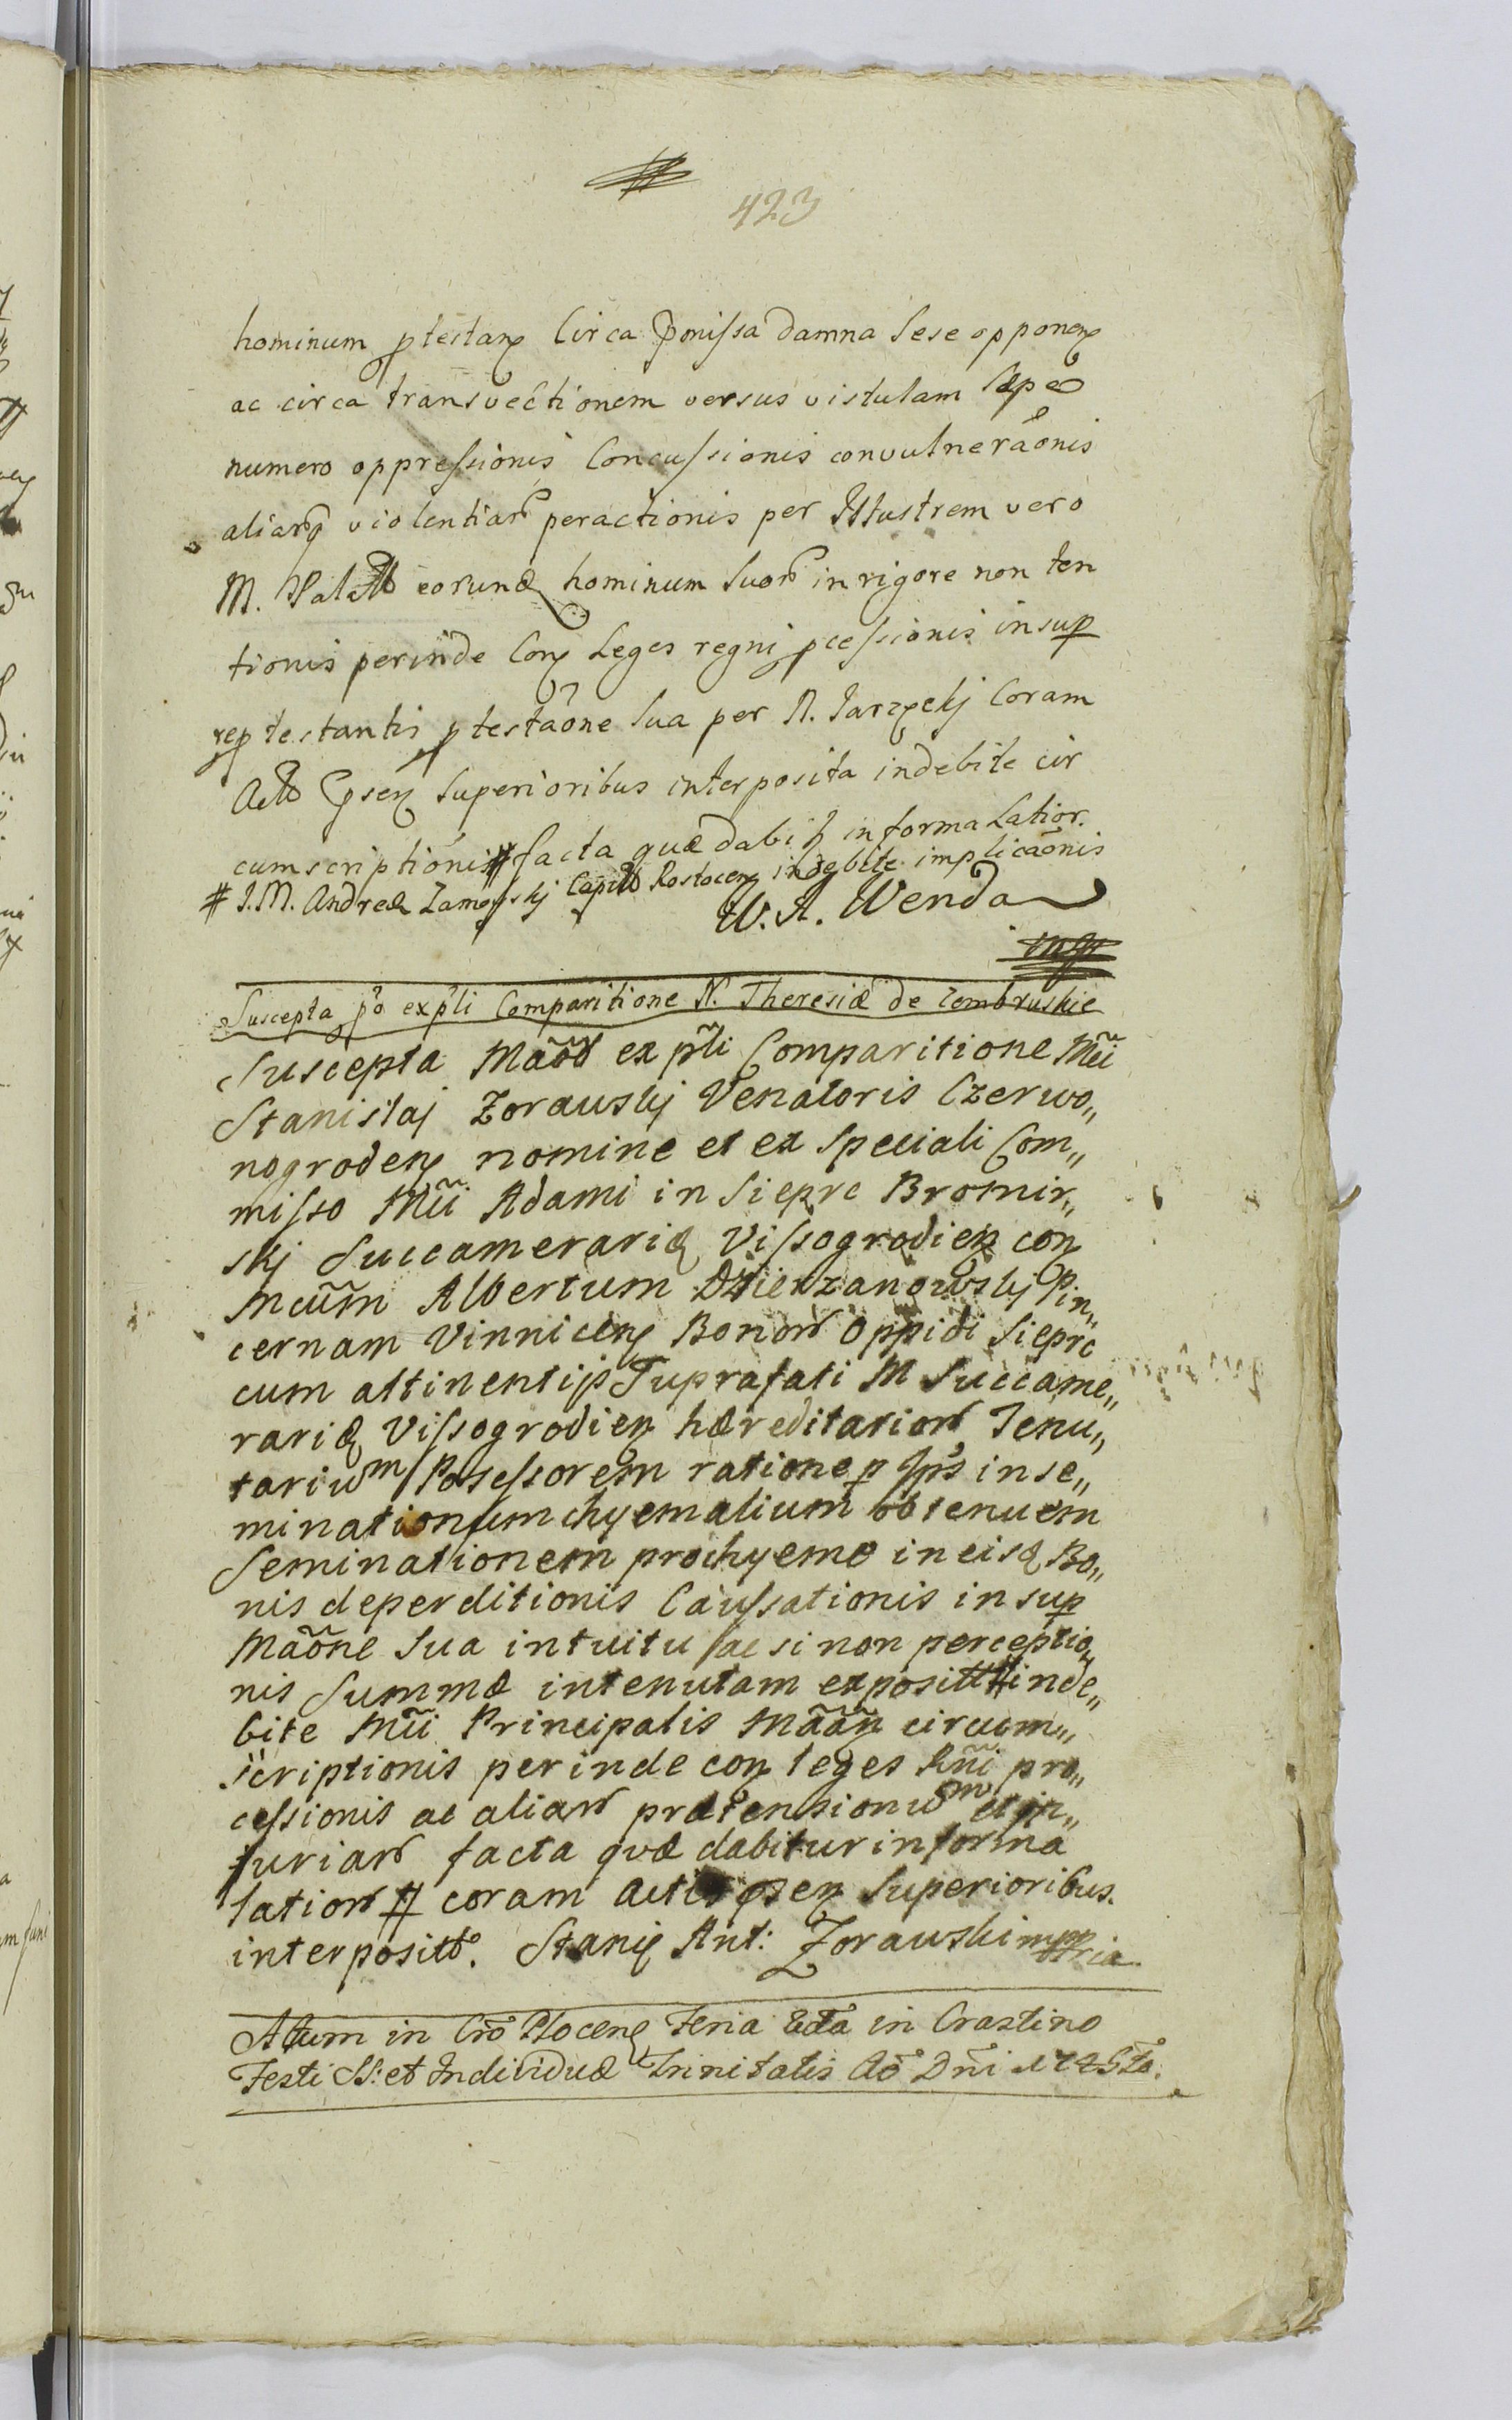 423
hominum ptestans Circa pmissa damna Sese opponens
ac circa transvectionem versus vistulam Sæpe
numero oppressionis Concussionis convulneraõnis
aliarq violentiar peractionis per Illustrem vero
M. Palat eorund hominum Suor in rigore non ten
tionis perinde Con Leges regni pcessionis insup
rep testantis ptestaõne Sua per N. Jarzęckj Coram
Act psen Superioribus interposita indebite cir
cumscriptionis # facta quæ dabit in forma Latior.
# I. M. Andreæ Zamoyskj Capit Rostocen indebite implicaõnis
W. A. Wenda
Suscepta po expli Comparitione N. Theresiæ de Zembruskie
Suscepta Mãõ ex pli Comparitione Mci
Stanislaj Zorauskj Venatoris Czerwo„
nogroden nomine et ex Speciali Com„
misso Mci Adami in Sieprc Bromir„
skj Succamerarii Vissogrodien con
Mcum Albertum Dzierzanowskj Pin„
cernam Vinnicen Bonor Oppidi Sieprc
cum attinentijs Suprafati M Succame„
rarii Vissogrodien hæreditarior Tenu„
tarium Possessorem ratione p Ips inse„
minationum chyemalium ob tenuem
Seminationem pro chyeme in eisd Bo„
nis deperditionis Caussationis insup
Mãõne Sua intuitu ac si non perceptio
nis Summæ in tenutam exposit # inde„
bite Mci Principalis Mããn circum„
scriptionis perinde con leges Rni pro„
cessionis ac aliar prætensionum et in„
juriar facta quæ dabitur in forma
latior # coram Actis psen Superioribus.
interposit. Stanis Ant: Zorauski mppria
Actum in Cro Plocen Feria 2da in Crastino
Festi SS: et Individuæ Trinitatis Aõ Dni 1745to.